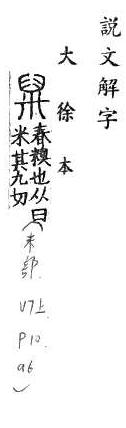 說文解字
大徐本
䊆
舂糗也从臼
米其九切
(米部.
V7上.
P10.
a6)